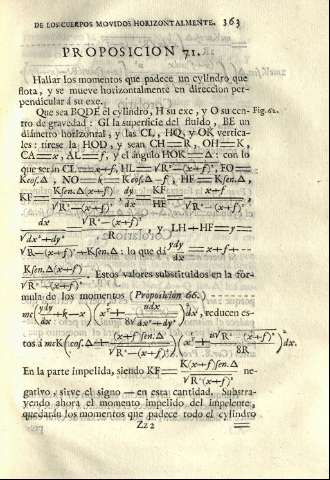 DE LOS CUERPOS MOVIDOS HORIZONTALMENTE. 363
PROPOSICION 71.
Hallar los momentos que padece un cylindro que
flota, y se mueve horizontalmente en direccion per-
pendicular á su exe.
Que sea BQDE el cylindro, H su exe, y O su cen- Fig. 62.
tro de gravedad: GI la superficie del fluido, BE un
diámetro horizontal, y las CL, HQ, y OK vertica-
les: tirese la HOD, y sean CH=R, OH=K,
CA=x, AL=f, y el ángulo HOK=Δ: con lo
que serán CL=x+f, HL=√R²-(x+f)², FO=
Kcos.Δ, NO=Kcos.Δ-f, HF=Ksen.Δ,
KF=Ksen.Δ(x+f)/√R²-(x+f)², dy/dx=KF/HF=x+f/√R²-(x+f)²,
dx/√dx²+dy²=√R²-(x+f)²/R, y LH+HF=y=
√R²-(x+f)²+Ksen.Δ: lo que dá ydy/dx=x+f+
Ksen.Δ(x+f)/√R²-(x+f)². Estos valores substituidos en la for-
mula de los momentos (Proposicion 66.)
dx, reducen es-
tos á
En la parte impelida, siendo KF=K(x+f)sen.Δ/√R²-(x+f)² ne-
gativo, sirve el signo — en esta cantidad. Substra-
yendo ahora el momento impelido del impelente,
quedarán los momentos que padece todo el cylindro
Zz 2 =